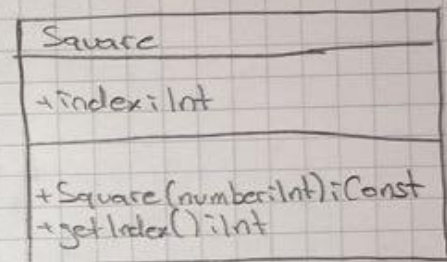 Square
+index:Int
+Square(number:Int):Const
+getIndex():Int